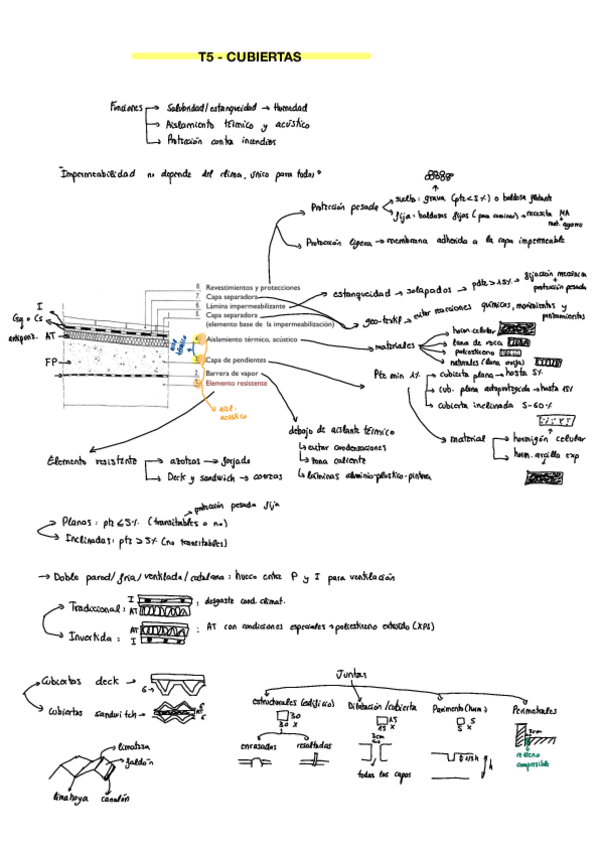 T5 - CUBIERTAS
Funciones → Salubridad/estanqueidad → Humedad
→ Aislamiento térmico y acústico
→ Protección contra incendios
Impermeabilidad no depende del clima, único para todos
Protección pesada
suelto: grava (pte<5%) o baldosa flotante
fija: baldosas fijas (para caminar) → necesita MA
Protección ligera → membrana adherida a la capa impermeable
8. Revestimientos y protecciones
7. Capa separadora
6. Lámina impermeabilizante
5. Capa separadora
(elemento base de la impermeabilización)
4. Aislamiento térmico, acústico
3. Capa de pendientes
2. Barrera de vapor
1. Elemento resistente
I
Gg o Cs
antipunz.
AT
FP
aisl.
acústico
estanqueidad → solapados → pdte >15% → fijación mecánica
protección pesada
geo-textil → evitar reacciones químicas, movimientos y
punzonamientos
materiales
horm. celular
lana de roca
poliestireno
naturales (lana oveja)
Pte min 1%
cubierta plana → hasta 5%
cub. plana autoprotegida → hasta 15%
cubierta inclinada 5-60%
material
hormigón celular
horm. arcilla exp
debajo de aislante térmico
↳ evitar condensaciones
↳ zona caliente
↳ láminas aluminio-plástico-pintura
Elemento resistente → azoteas → forjado
→ Deck y sandwich → correas
protección pesada fija
Planas: pte ≤ 5% (transitables o no)
Inclinadas: pte > 5% (no transitables)
→ Doble pared/fría/ventilada/catalana: hueco entre P y I para ventilación
Tradicional: I AT : desgaste cond. climat.
Invertida: AT I : AT con condiciones especiales → poliestireno extruido (XPS)
Cubiertas deck → 6
Cubiertas sandwitch → 6 AT 6
limatesa
faldón
limahoya
canalón
Juntas
estructurales (edificio)
30
30 x
enrasadas
resaltadas
Dilatación/cubierta
15
15 x
3cm
todas las capas
Pavimento (horm)
5
5 x
1/3 h
h
Perimetrales
3cm
relleno
compresible